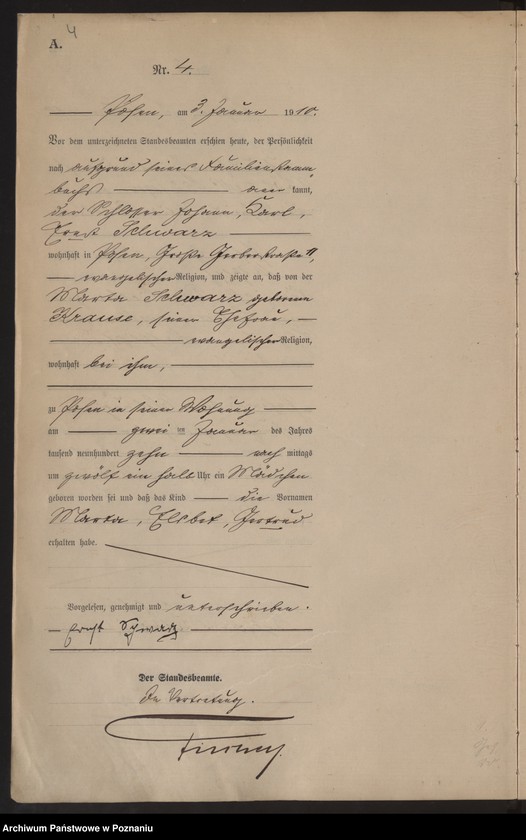 4
A.
Nr. 4.
Posen, am 3. Januar 1910.
Vor dem unterzeichneten Standesbeamten erschien heute, der Persönlichkeit
nach aufgrund seines Familienstamm-
buchs aner kannt,
der Schlosser Johann, Karl,
Ernst Schwarz
wohnhaft in Posen, Große Gerberstraße
evangelischer Religion, und zeigte an, daß von der
Marta Schwarz geborene
Krause, seiner Ehefrau,
evangelischer Religion,
wohnhaft bei ihm,
zu Posen in seiner Wohnung
am zwei ten Januar des Jahres
tausend neunhundert zehn nach mittags
um zwölf ein halb Uhr ein Mädchen
geboren worden sei und daß das Kind die Vornamen
Marta, Elsbet, Gertrud
erhalten habe.
Vorgelesen, genehmigt und unterschrieben.
Ernst Schwarz
Der Standesbeamte.
In Vertretung.
Archiwum Państwowe w Poznaniu